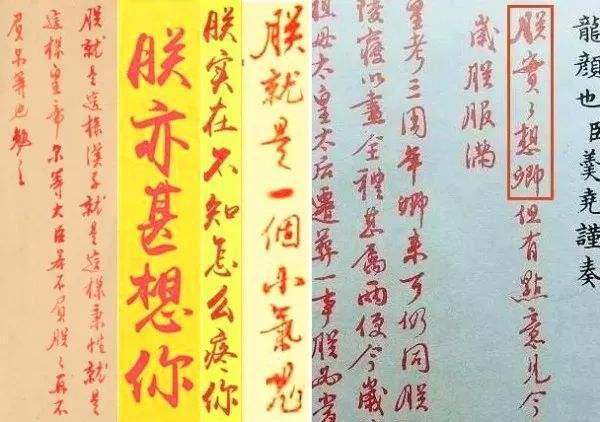 龍顔也臣羹堯謹奏
朕實々想卿但有點意見今
歲朕服滿
皇考三周年卿来可仍同朕
陵寢以盡全禮甚屬兩便今歲
祖母太皇太后遷葬一事朕
朕就是一個小氣鬼
朕实在不知怎么疼你
朕亦甚想你
朕就是這樣漢子就是這樣秉性就是
這樣皇帝尔等大臣若不負朕々再不
負尔等也勉之